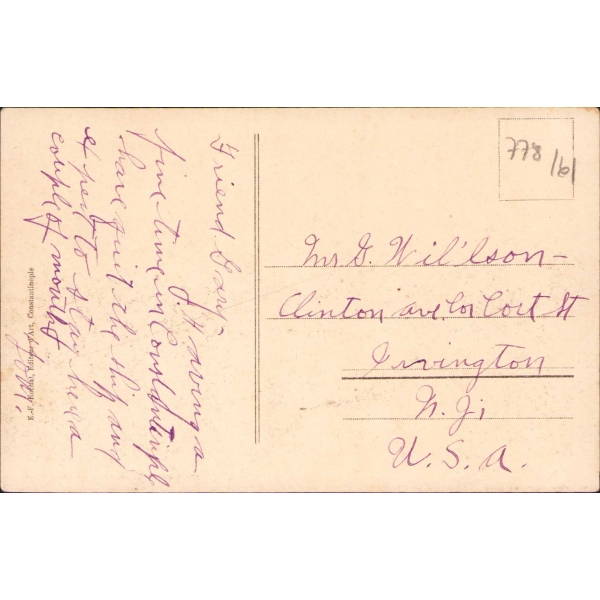 Friend Gary-
Having a
fine time in Constantinople
have quit the ship and
expect to stay here a
couple of months
E.F. Rochat, Editeur d'Art, Constantinople
778/61
Mr G. Wil'lson-
Clinton ave Cor Cort St
Irvington
N. J.
U. S. A.